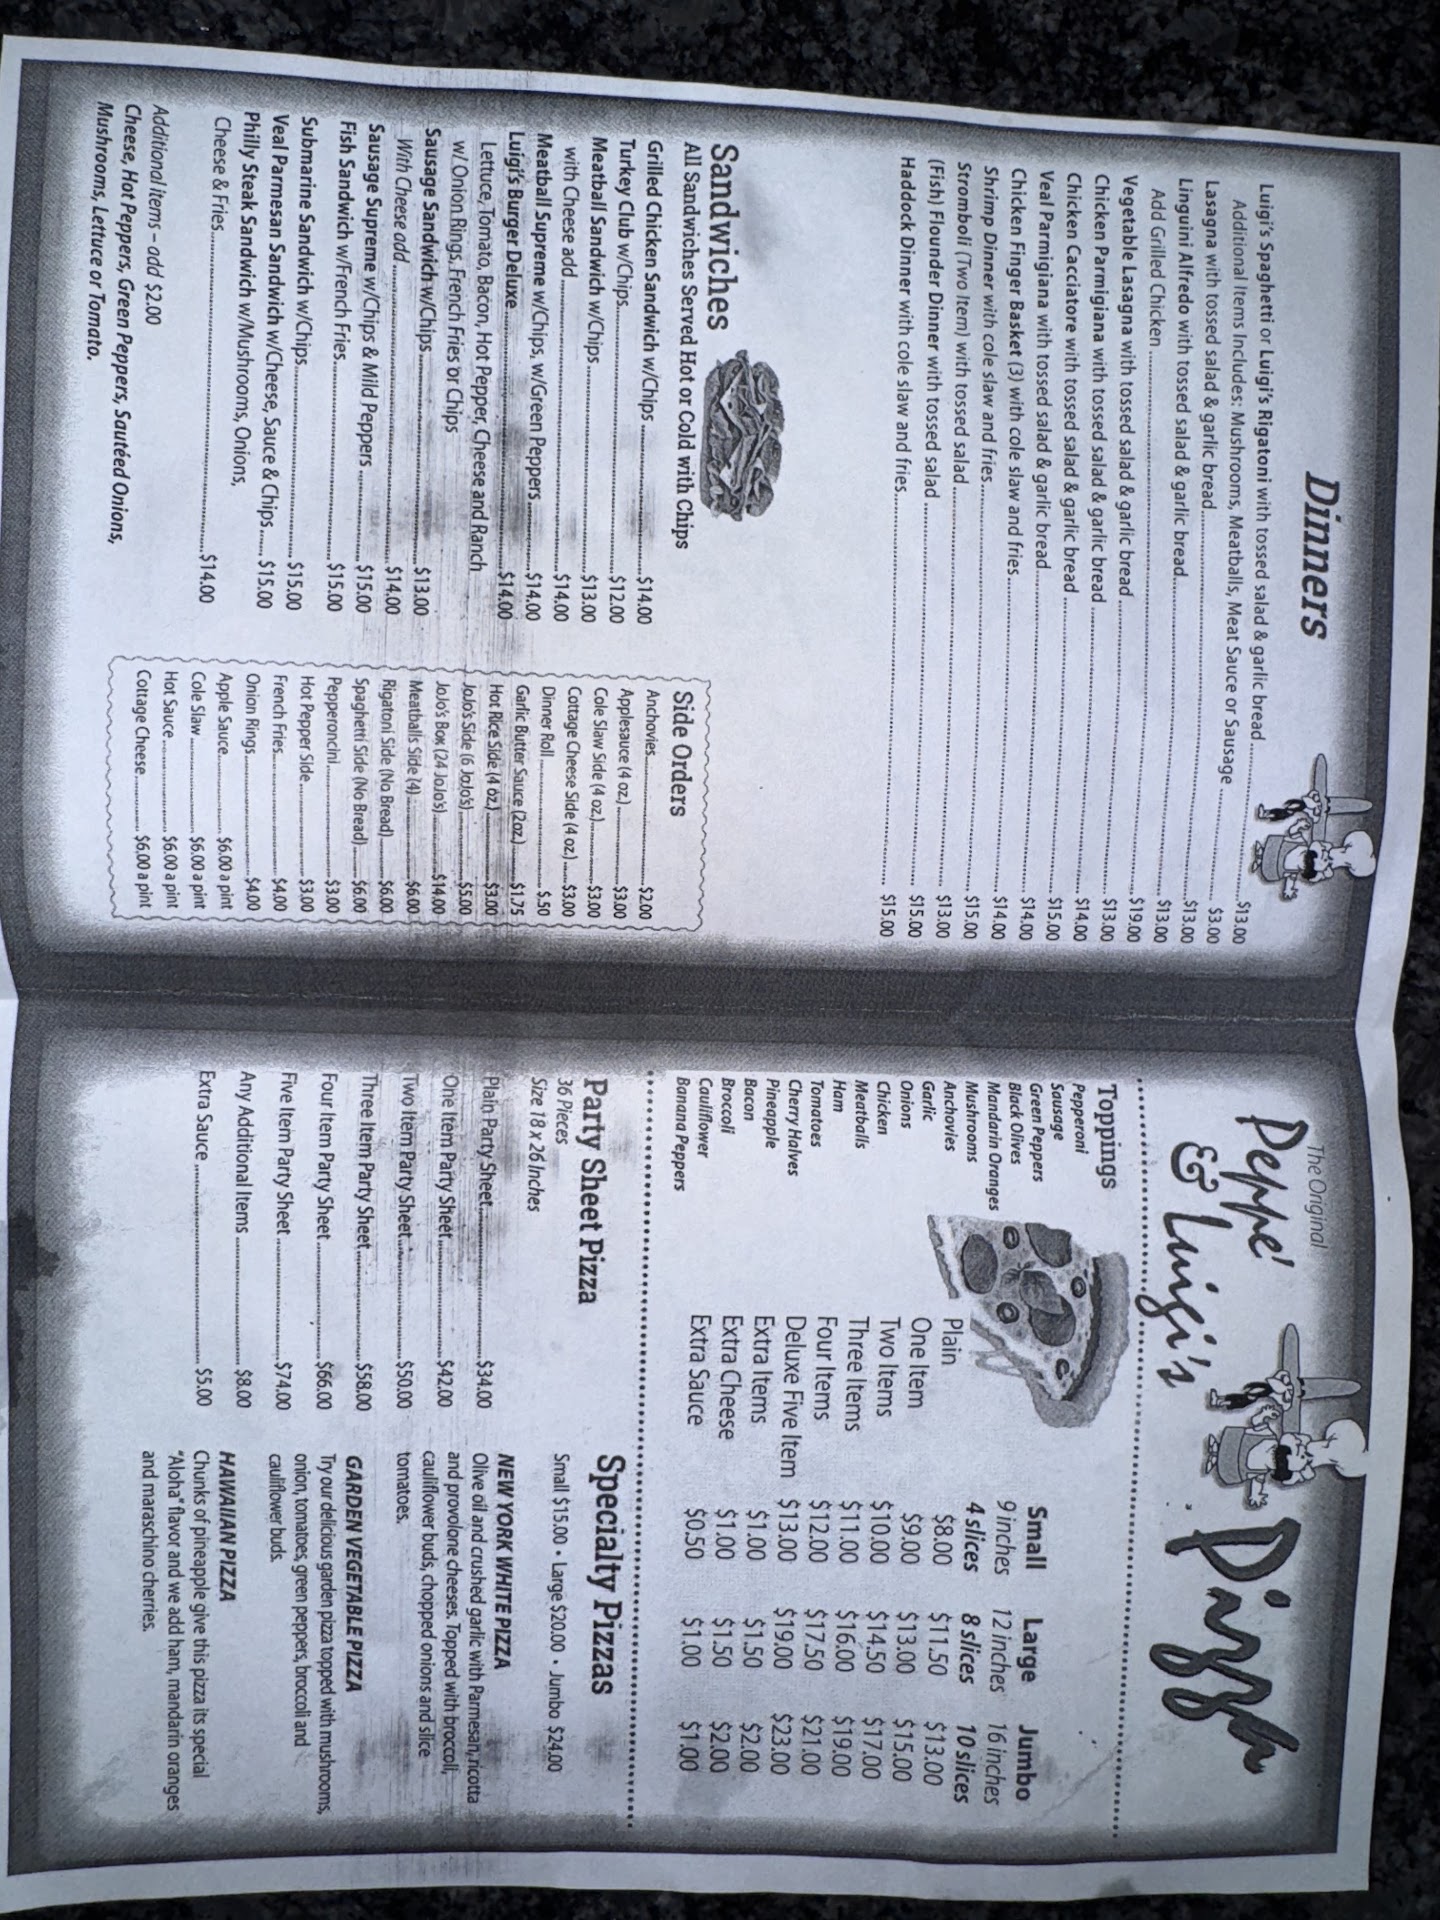 Dinners
Luigi's Spaghetti or Luigi's Rigatoni with tossed salad & garlic bread..........$13.00
Additional Items Includes: Mushrooms, Meatballs, Meat Sauce or Sausage..........$3.00
Lasagna with tossed salad & garlic bread..........$13.00
Linguini Alfredo with tossed salad & garlic bread..........$13.00
Add Grilled Chicken..........$19.00
Vegetable Lasagna with tossed salad & garlic bread..........$13.00
Chicken Parmigiana with tossed salad & garlic bread..........$14.00
Chicken Cacciatore with tossed salad & garlic bread..........$15.00
Veal Parmigiana with tossed salad & garlic bread..........$14.00
Chicken Finger Basket (3) with cole slaw and fries..........$14.00
Shrimp Dinner with cole slaw and fries..........$15.00
Stromboli (Two Item) with tossed salad..........$13.00
(Fish) Flounder Dinner with tossed salad..........$15.00
Haddock Dinner with cole slaw and fries..........$15.00
Sandwiches
All Sandwiches Served Hot or Cold with Chips
Grilled Chicken Sandwich w/Chips..........$14.00
Turkey Club w/Chips..........$12.00
Meatball Sandwich w/Chips..........$13.00
with Cheese add..........$14.00
Meatball Supreme w/Chips, w/Green Peppers..........$14.00
Luigi's Burger Deluxe..........$14.00
Lettuce, Tomato, Bacon, Hot Pepper, Cheese and Ranch
w/ Onion Rings, French Fries or Chips
Sausage Sandwich w/Chips..........$13.00
With Cheese add..........$14.00
Sausage Supreme w/Chips & Mild Peppers..........$15.00
Fish Sandwich w/French Fries..........$15.00
Submarine Sandwich w/Chips..........$15.00
Veal Parmesan Sandwich w/Cheese, Sauce & Chips..........$15.00
Philly Steak Sandwich w/Mushrooms, Onions,
Cheese & Fries..........$14.00
Additional Items – add $2.00
Cheese, Hot Peppers, Green Peppers, Sautéed Onions,
Mushrooms, Lettuce or Tomato.
Side Orders
Anchovies..........$2.00
Applesauce (4 oz.)..........$3.00
Cole Slaw Side (4 oz.)..........$3.00
Cottage Cheese Side (4 oz.)..........$3.00
Dinner Roll..........$.50
Garlic Butter Sauce (2oz.)..........$1.75
Hot Rice Side (4 oz.)..........$3.00
JoJo's Side (6 JoJo's)..........$5.00
JoJo's Box (24 JoJo's)..........$14.00
Meatballs Side (4)..........$6.00
Rigatoni Side (No Bread)..........$6.00
Spaghetti Side (No Bread)..........$6.00
Pepperoncini..........$3.00
Hot Pepper Side..........$3.00
French Fries..........$4.00
Onion Rings..........$4.00
Apple Sauce..........$6.00 a pint
Cole Slaw..........$6.00 a pint
Hot Sauce..........$6.00 a pint
Cottage Cheese..........$6.00 a pint
The Original
Peppe'
& Luigi's
Pizza
Toppings
Pepperoni
Sausage
Green Peppers
Black Olives
Mandarin Oranges
Mushrooms
Anchovies
Garlic
Onions
Chicken
Meatballs
Ham
Tomatoes
Cherry Halves
Pineapple
Bacon
Broccoli
Cauliflower
Banana Peppers
Small Large Jumbo
9 inches 12 inches 16 inches
4 slices 8 slices 10 slices
Plain $8.00 $11.50 $13.00
One Item $9.00 $13.00 $15.00
Two Items $10.00 $14.50 $17.00
Three Items $11.00 $16.00 $19.00
Four Items $12.00 $17.50 $21.00
Deluxe Five Item $13.00 $19.00 $23.00
Extra Items $1.00 $1.50 $2.00
Extra Cheese $1.00 $1.50 $2.00
Extra Sauce $0.50 $1.00 $1.00
Party Sheet Pizza
36 Pieces
Size 18 x 26 Inches
Plain Party Sheet..........$34.00
One Item Party Sheet..........$42.00
Two Item Party Sheet..........$50.00
Three Item Party Sheet..........$58.00
Four Item Party Sheet..........$66.00
Five Item Party Sheet..........$74.00
Any Additional Items..........$8.00
Extra Sauce..........$5.00
Specialty Pizzas
Small $15.00 • Large $20.00 • Jumbo $24.00
NEW YORK WHITE PIZZA
Olive oil and crushed garlic with Parmesan, ricotta
and provolone cheeses. Topped with broccoli,
cauliflower buds, chopped onions and slice
tomatoes.
GARDEN VEGETABLE PIZZA
Try our delicious garden pizza topped with mushrooms,
onion, tomatoes, green peppers, broccoli and
cauliflower buds.
HAWAIIAN PIZZA
Chunks of pineapple give this pizza its special
"Aloha" flavor and we add ham, mandarin oranges
and maraschino cherries.